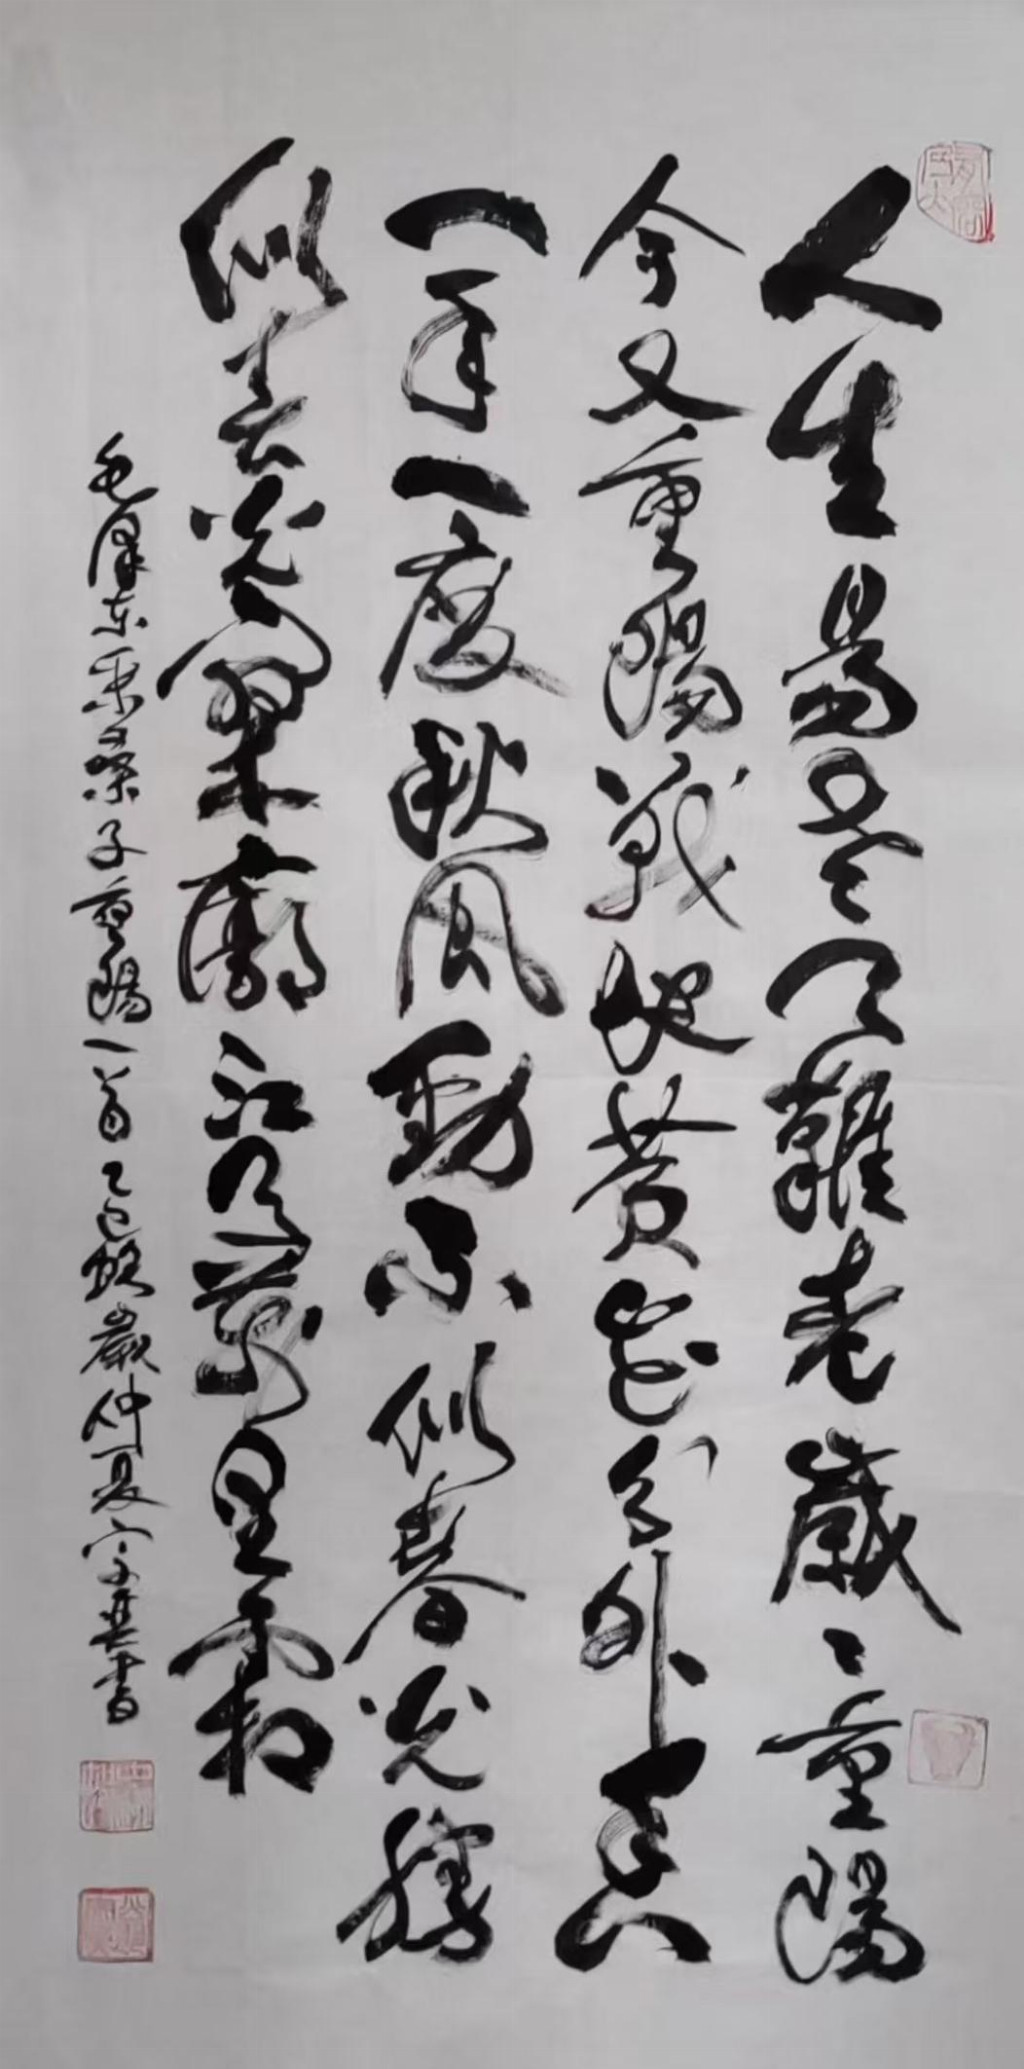 人生易老天難老歲〻重陽
今又重陽戰地黃花分外香
一年一度秋風勁不似春光勝
似春光寥廓江天萬里霜
毛澤東采桑子重陽一首乙巳蛇歲仲夏書